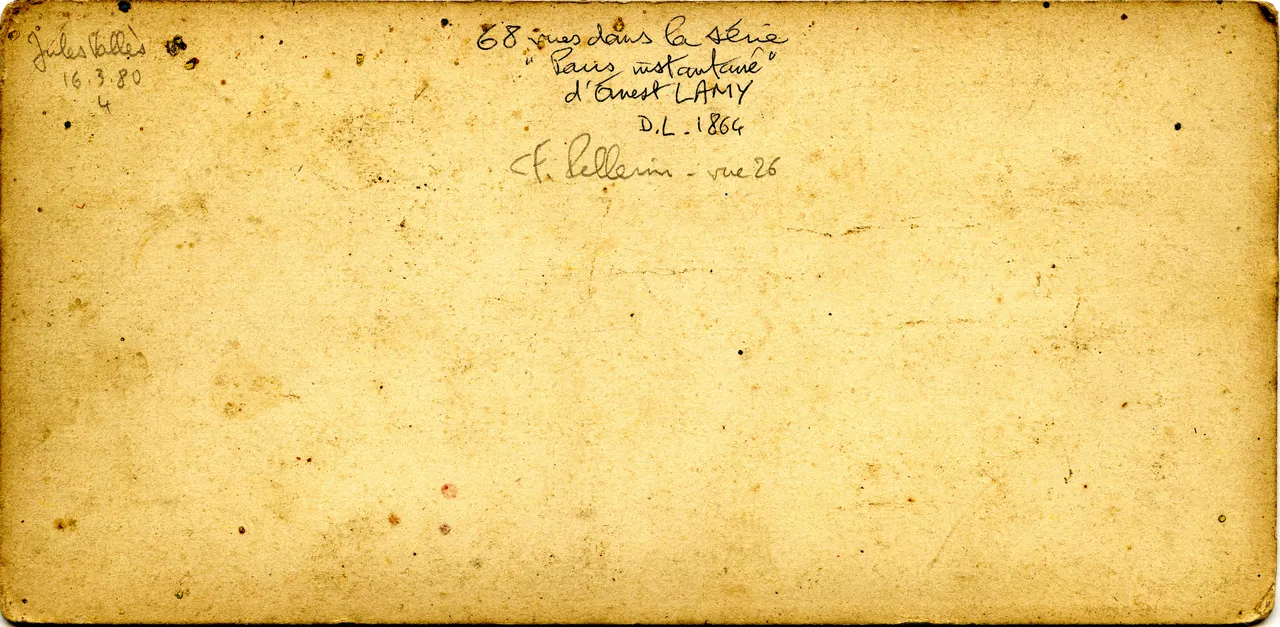 Jules Vallès
16.3.80
4
68 vues dans la série
"Paris instantané"
d'Ernest LAMY
D.L. 1864
cf. Pellerin - vue 26